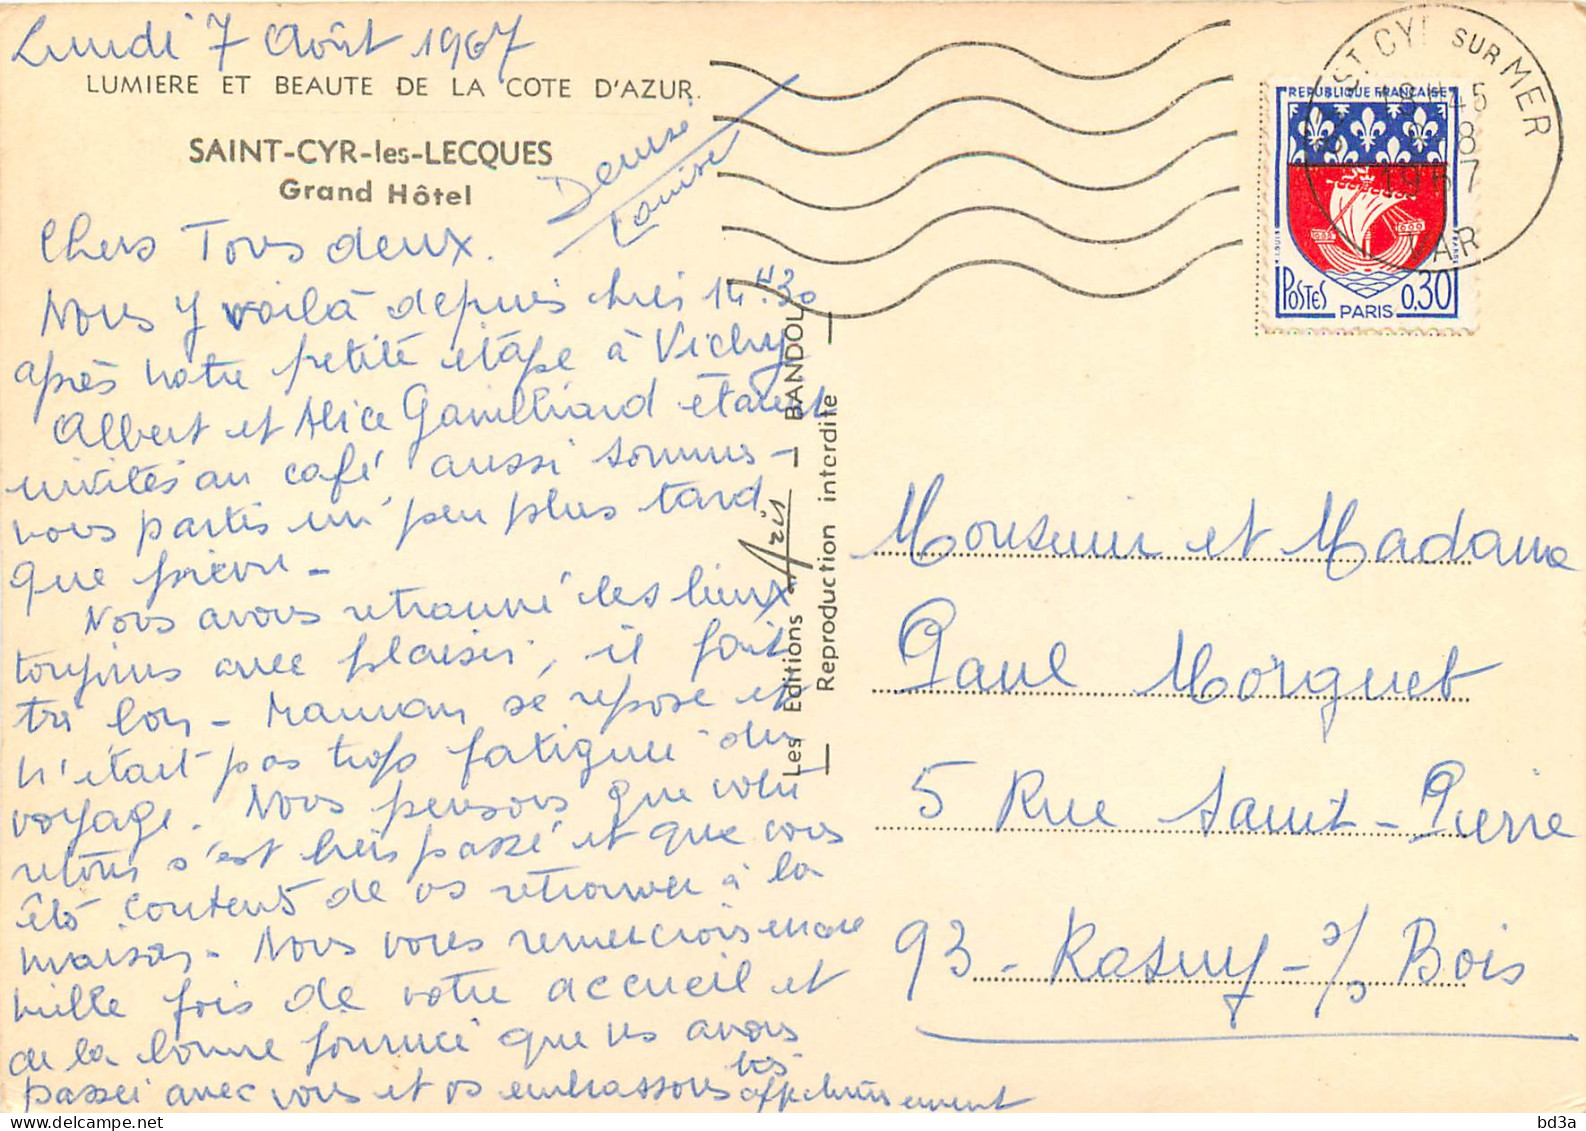 Lundi 7 Août 1967
LUMIERE ET BEAUTE DE LA COTE D'AZUR.
SAINT-CYR-les-LECQUES
Grand Hôtel
Denise
Louise
Chers Tous deux.
Nous y voilà depuis hier 14H30
après notre petite étape à Vichy
Albert et Alice Gamilliard étaient
invités au café aussi sommes-
nous partis un peu plus tard
que prévu -
Nous avons retrouvé les lieux
toujours avec plaisir, il fait
très bon - Maman se repose et
n'était pas trop fatiguée du
voyage. Nous pensons que votre
retour s'est bien passé et que vous
êtes contents de vs retrouver à la
maison - Nous vous remercions encore
mille fois de votre accueil et
de la bonne journée que ns avons
passée avec vous et vs embrassons très
affectueusement
Les Editions "Aris" — BANDOL
— Reproduction interdite —
ST CYR SUR MER
18H45
8
1967
VAR
REPUBLIQUE FRANCAISE
POSTES
PARIS
0,30
Monsieur et Madame
Paul Morguet
5 Rue Saint-Pierre
93 - Rosny - s/s Bois
bd3a